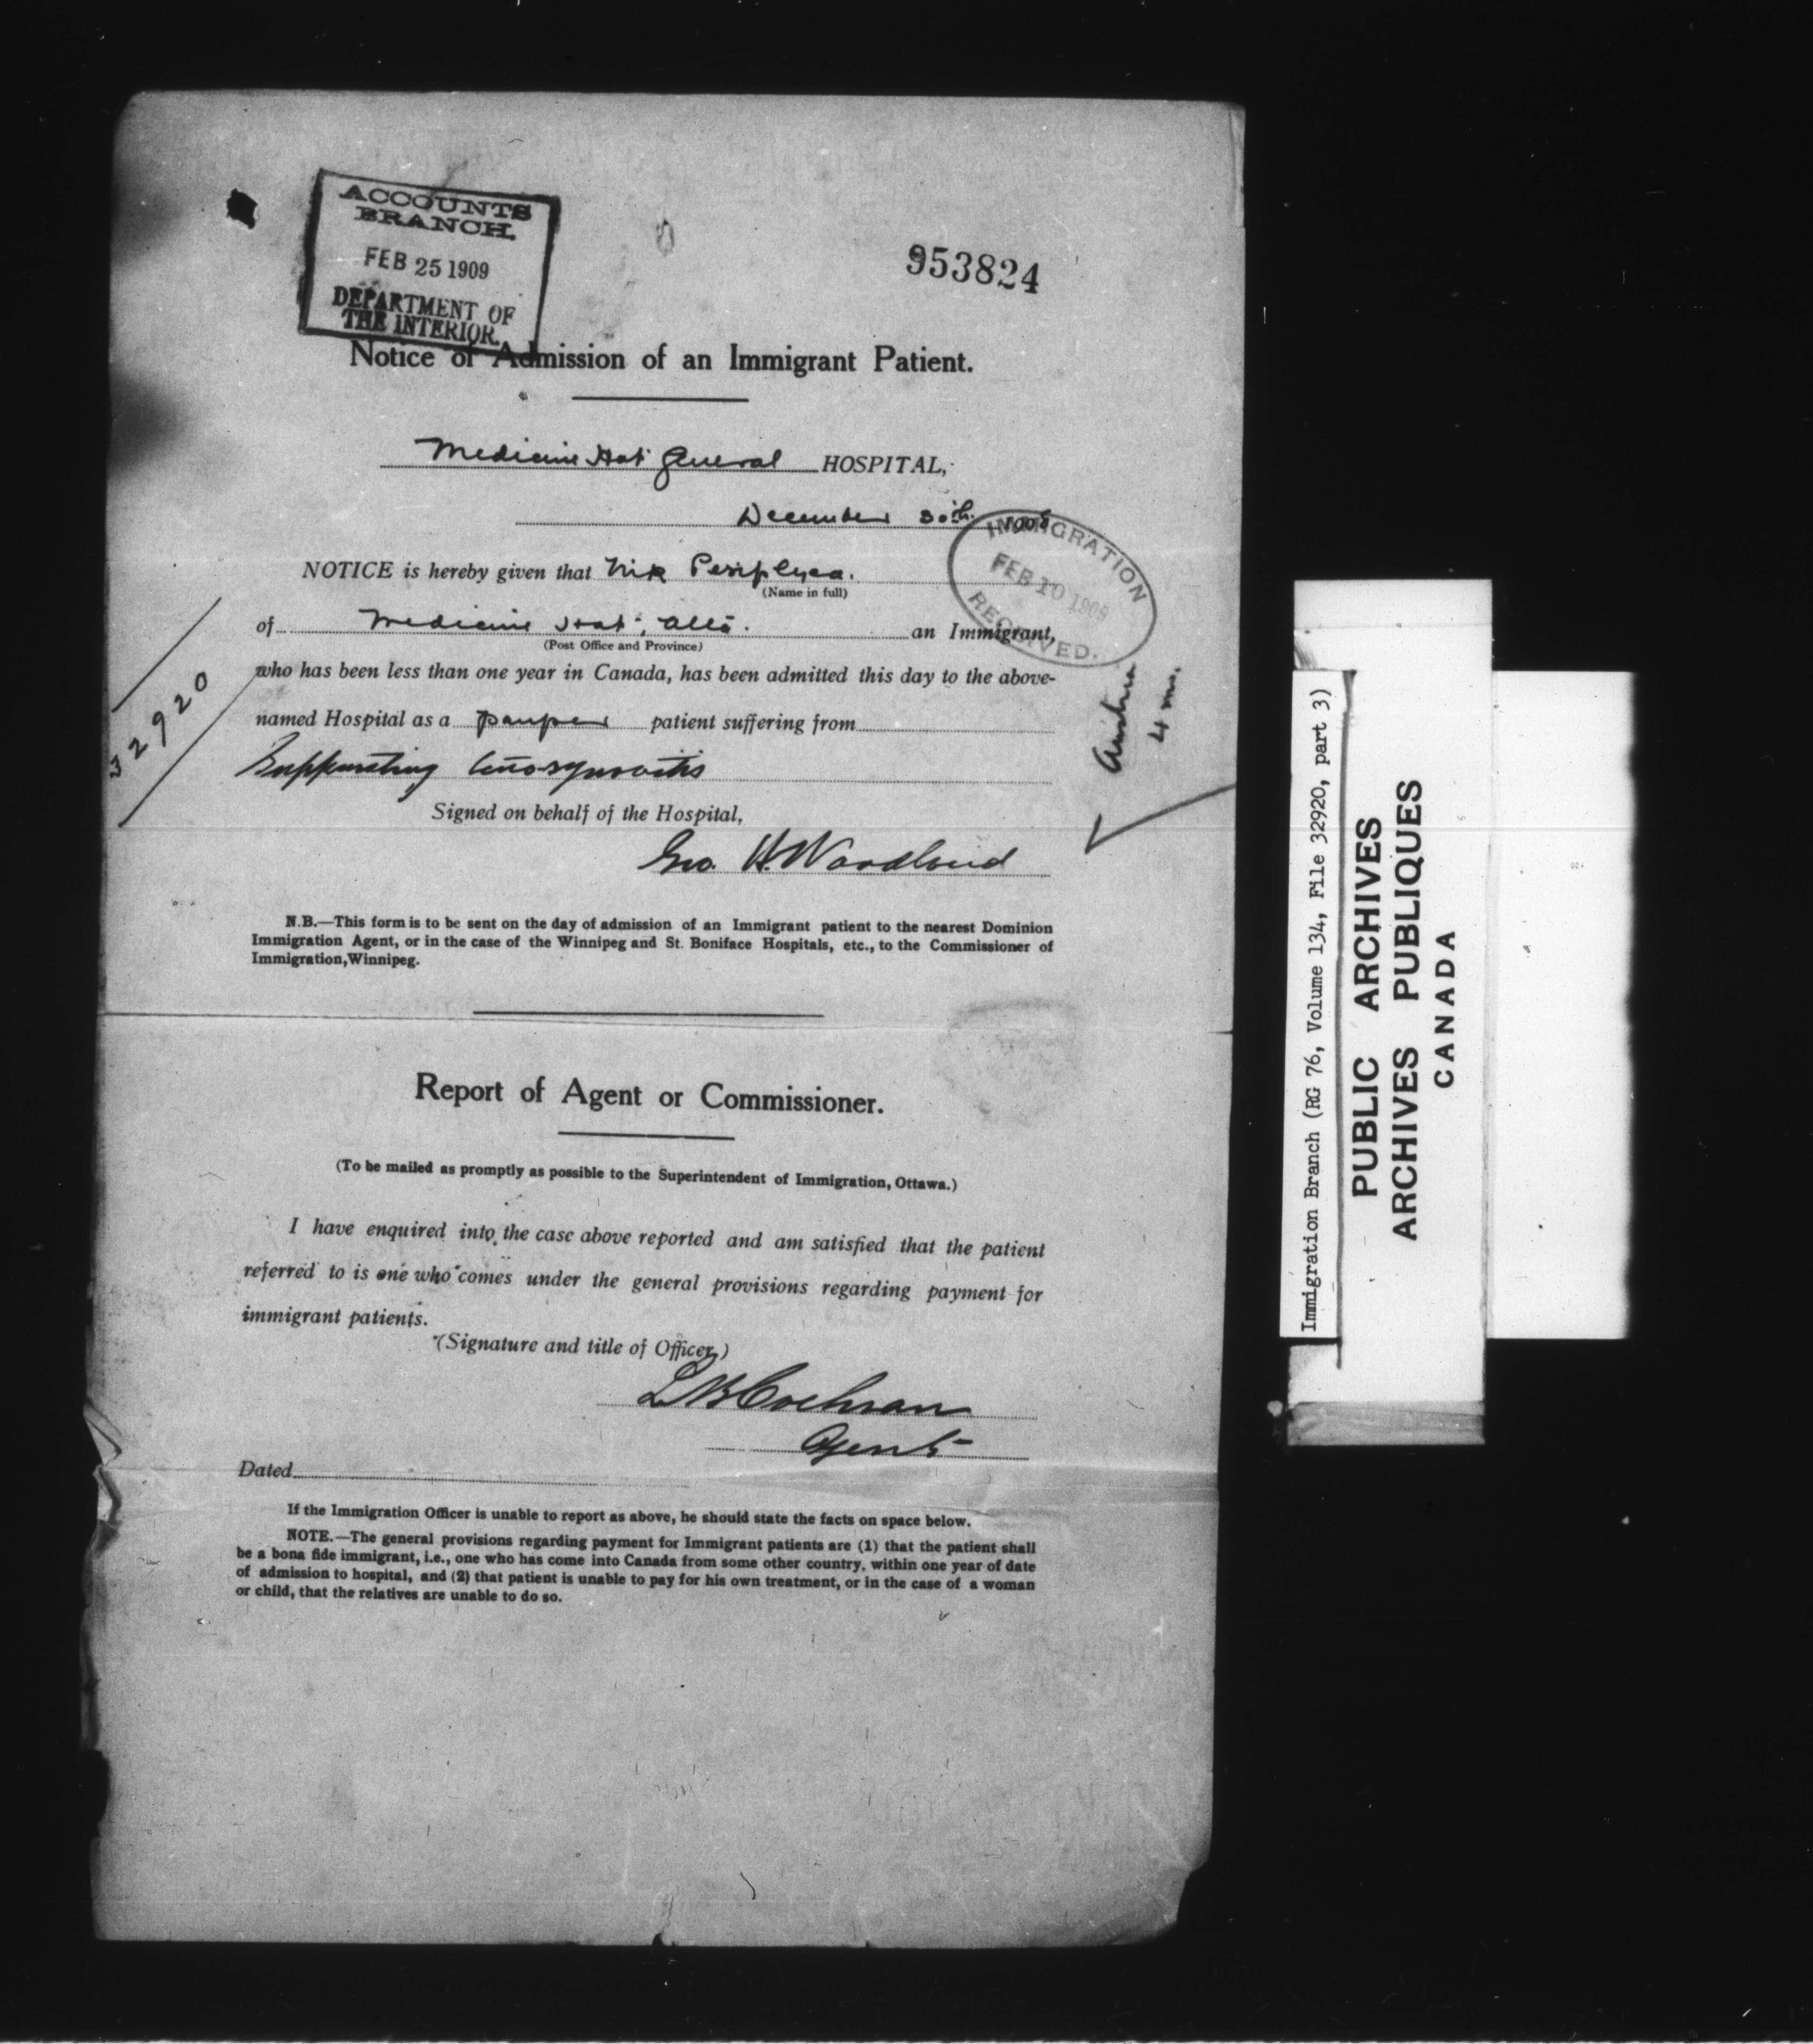 ACCOUNTS
BRANCH.
FEB 25 1909
DEPARTMENT OF
THE INTERIOR.
953824
Notice of Admission of an Immigrant Patient.
Medicine Hat General HOSPITAL,
December 30th. 1908
IMMIGRATION
FEB 10 1909
RECEIVED.
NOTICE is hereby given that Nik
(Name in full)
of Medicine Hat, Alta. an Immigrant,
(Post Office and Province)
who has been less than one year in Canada, has been admitted this day to the above-
named Hospital as a pauper patient suffering from
Suppurating teno-synovitis
32920
Austria
4 ms.
Signed on behalf of the Hospital,
Geo. H.
N.B.—This form is to be sent on the day of admission of an Immigrant patient to the nearest Dominion
Immigration Agent, or in the case of the Winnipeg and St. Boniface Hospitals, etc., to the Commissioner of
Immigration, Winnipeg.
Report of Agent or Commissioner.
(To be mailed as promptly as possible to the Superintendent of Immigration, Ottawa.)
I have enquired into the case above reported and am satisfied that the patient
referred to is one who comes under the general provisions regarding payment for
immigrant patients.
(Signature and title of Officer)
Cochran
Agent
Dated
If the Immigration Officer is unable to report as above, he should state the facts on space below.
NOTE.—The general provisions regarding payment for Immigrant patients are (1) that the patient shall
be a bona fide immigrant, i.e., one who has come into Canada from some other country, within one year of date
of admission to hospital, and (2) that patient is unable to pay for his own treatment, or in the case of a woman
or child, that the relatives are unable to do so.
Immigration Branch (RG 76, Volume 134, File 32920, part 3)
PUBLIC ARCHIVES
ARCHIVES PUBLIQUES
CANADA